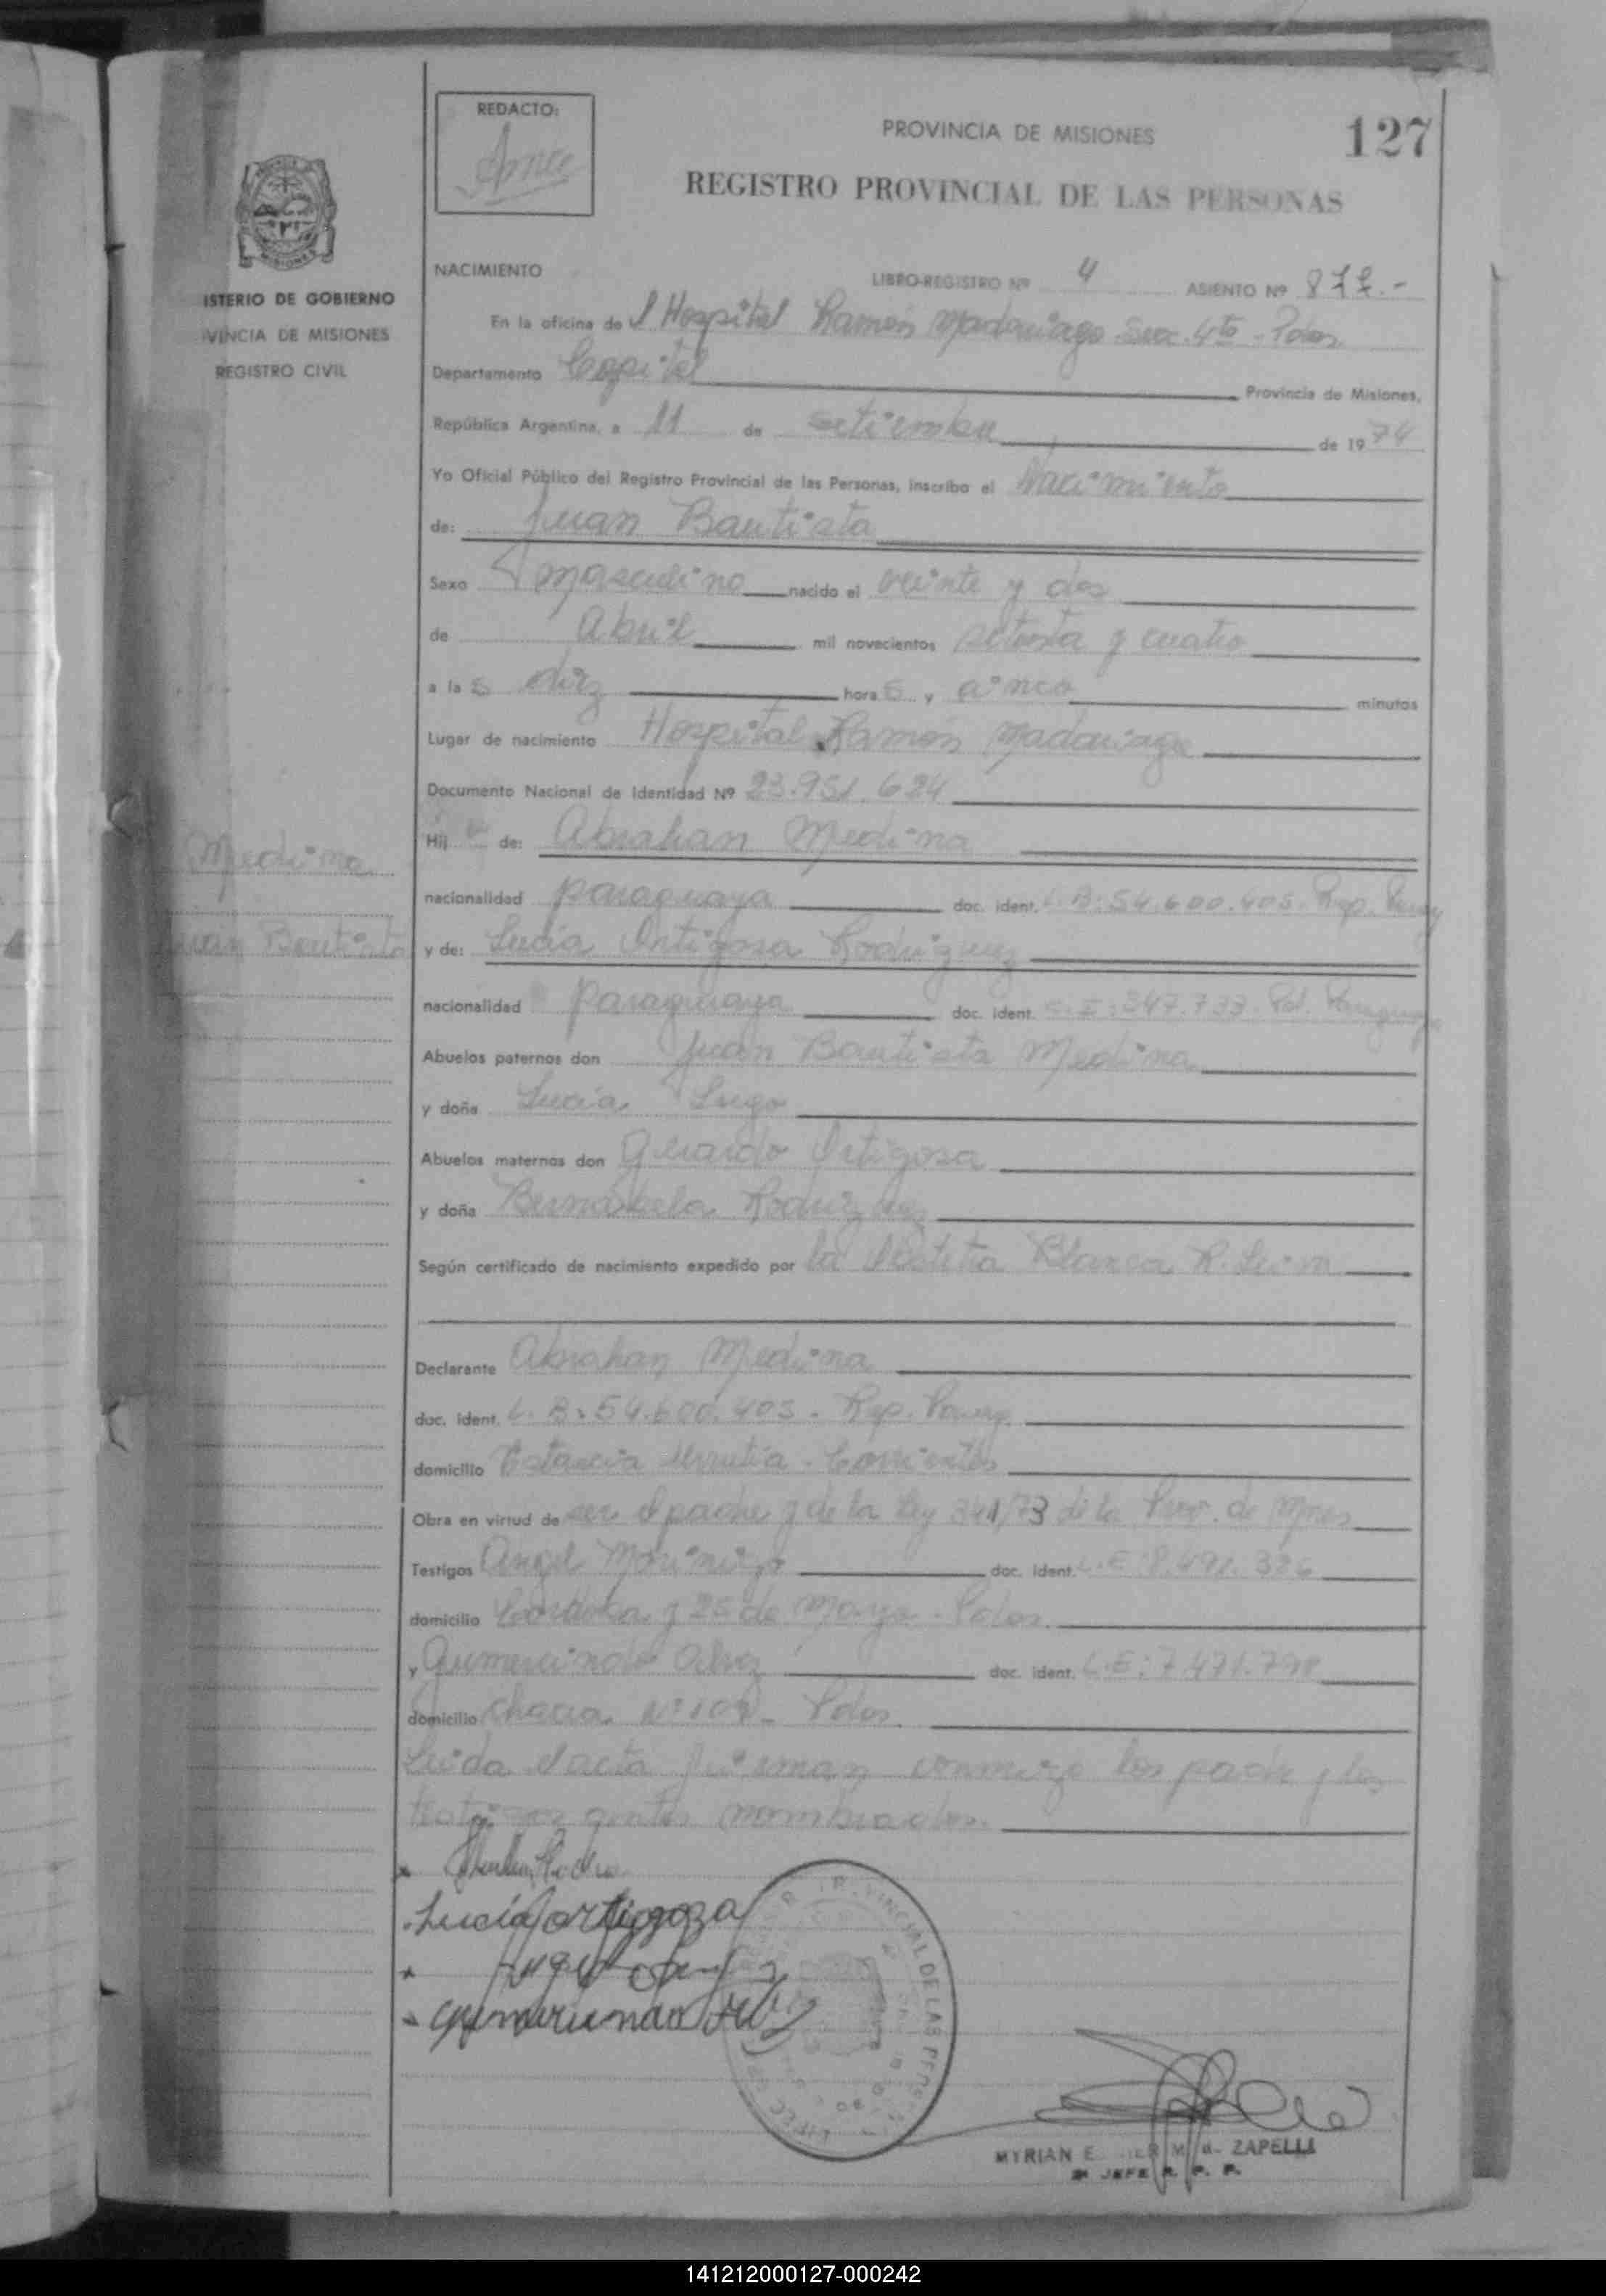 REDACTO:
PROVINCIA DE MISIONES
127
REGISTRO PROVINCIAL DE LAS PERSONAS
MISIONES
ISTERIO DE GOBIERNO
VINCIA DE MISIONES
REGISTRO CIVIL
NACIMIENTO
LIBRO-REGISTRO Nº 4 ASIENTO Nº
En la oficina de l Hospital Ramón Madariaga Secc. 4ta - Pdas.
Departamento Capital Provincia de Misiones,
República Argentina, a 11 de setiembre de 1974
Yo Oficial Público del Registro Provincial de las Personas, inscribo el Nacimiento
de: Juan Bautista
Sexo masculino nacido el veinte y dos
de Abril mil novecientos setenta y cuatro
a las diez horas y cinco minutos
Lugar de nacimiento Hospital Ramón Madariaga
Documento Nacional de Identidad Nº 23.951.624
Medina
Hijo de: Abrahan Medina
nacionalidad paraguaya doc. ident. L.B: 54.600.405. Rep. Parag
Juan Bautista
y de: Lucía Ortigosa Rodriguez
nacionalidad paraguaya doc. ident. C.I: 347.733. Pol. Paraguaya
Abuelos paternos don Juan Bautista Medina
y doña Lucía Lugo
Abuelos maternos don Gerardo Ortigosa
y doña Bernabela Rodriguez
Según certificado de nacimiento expedido por la Obstetra Blanca R. Leiva
Declarante Abrahan Medina
doc. ident. L.B: 54.600.405. Rep. Parag.
domicilio Estancia Urrutia - Corrientes
Obra en virtud de ser el padre y de la ley 341/73 de la Prov. de Mnes
Testigos Angel Morinigo doc. ident. L.E: 8.491.326
domicilio Cordoba y 25 de Mayo - Pdas.
y Gumercindo Alvez doc. ident. L.E: 7.471.798
domicilio Chacra Nº 109 - Pdas.
Leida el acta firman conmigo los padre y los
testigos antes nombrados.
Lucía ortigoza
Gumercindo Alvez
MYRIAN E. ZAPELLI
JEFE R. P. P.
141212000127-000242